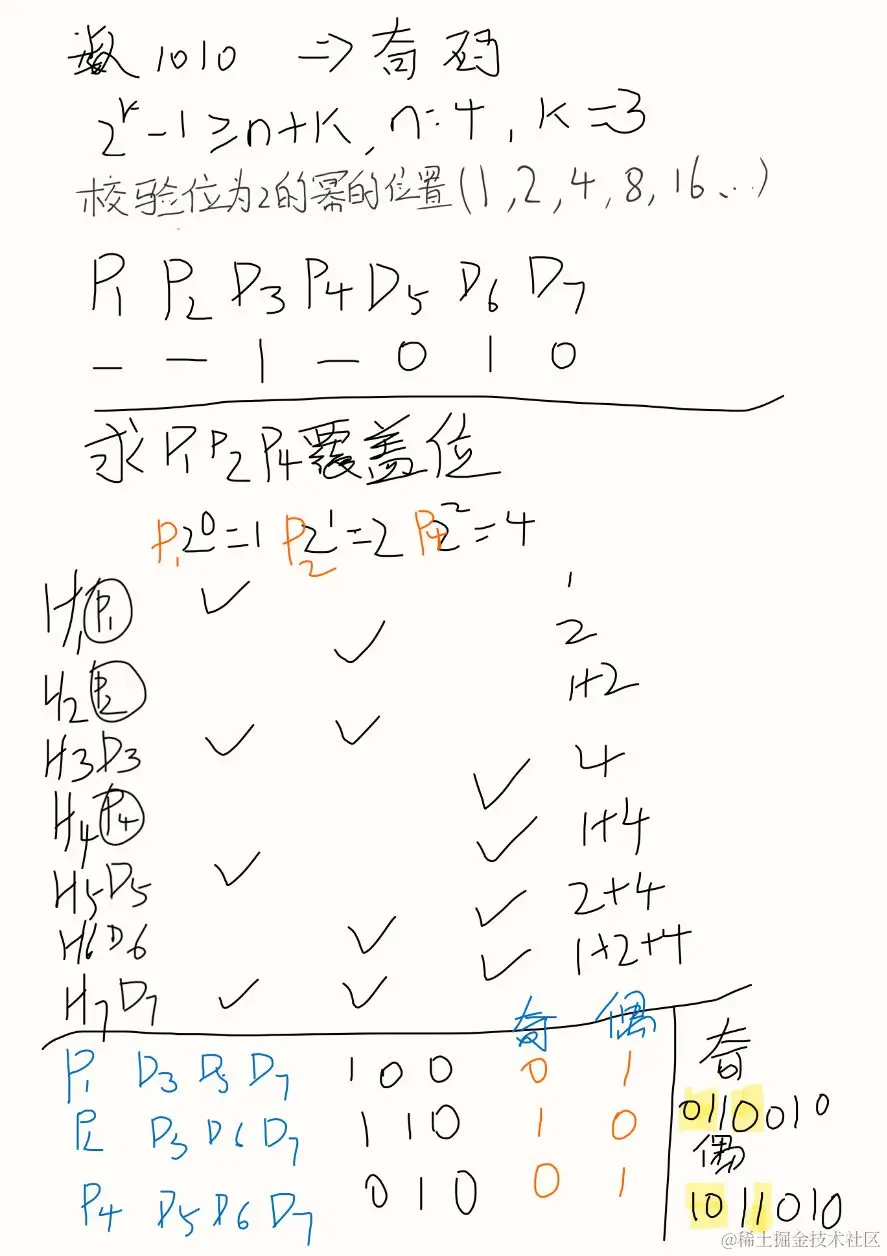 数1010 => 奇码
2^k-1≥n+K,n=4,K=3
校验位为2的幂的位置(1,2,4,8,16...)
P1 P2 D3 P4 D5 D6 D7
— — 1 — 0 1 0
求P1P2P4覆盖位
P1 2^0=1 P2 2^1=2 P4 2^2=4
H1P1 ✓ 1
H2P2 ✓ 2
H3D3 ✓ ✓ 1+2
H4P4 ✓ 4
H5D5 ✓ ✓ 1+4
H6D6 ✓ ✓ 2+4
H7D7 ✓ ✓ ✓ 1+2+4
奇 偶
P1 D3 D5 D7 1 0 0 0 1
P2 D3 D6 D7 1 1 0 1 0
P4 D5 D6 D7 0 1 0 0 1
奇
0110010
偶
1011010
@稀土掘金技术社区